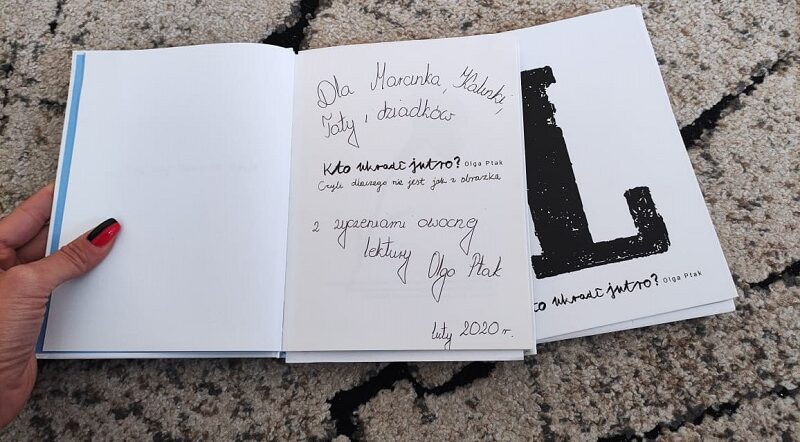 Dla Marcinka, Kalinki,
Taty i dziadków
Kto ukradł jutro? Olga Ptak
Czyli dlaczego nie jest jak z obrazka
z życzeniami owocnej
lektury Olga Ptak
luty 2020 r.
L
to ukradł jutro? Olga Ptak